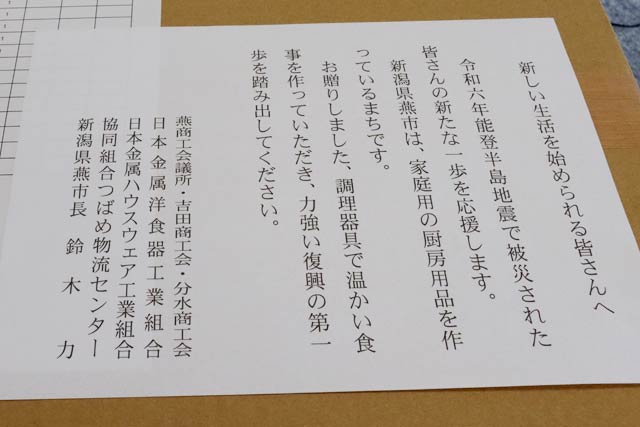 新しい生活を始められる皆さんへ
令和六年能登半島地震で被災された
皆さんの新たな一歩を応援します。
新潟県燕市は、家庭用の厨房用品を作
っているまちです。
お贈りしました、調理器具で温かい食
事を作っていただき、力強い復興の第一
歩を踏み出してください。
燕商工会議所・吉田商工会・分水商工会
日本金属洋食器工業組合
日本金属ハウスウェア工業組合
協同組合つばめ物流センター
新潟県燕市長 鈴木力